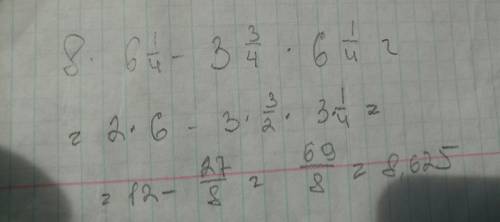 8 · 6 1/4 - 3 3/4 · 6 1/4 =
= 2 · 6 - 3 · 3/2 · 3 · 1/4 =
= 12 - 27/8 = 69/8 = 8,625